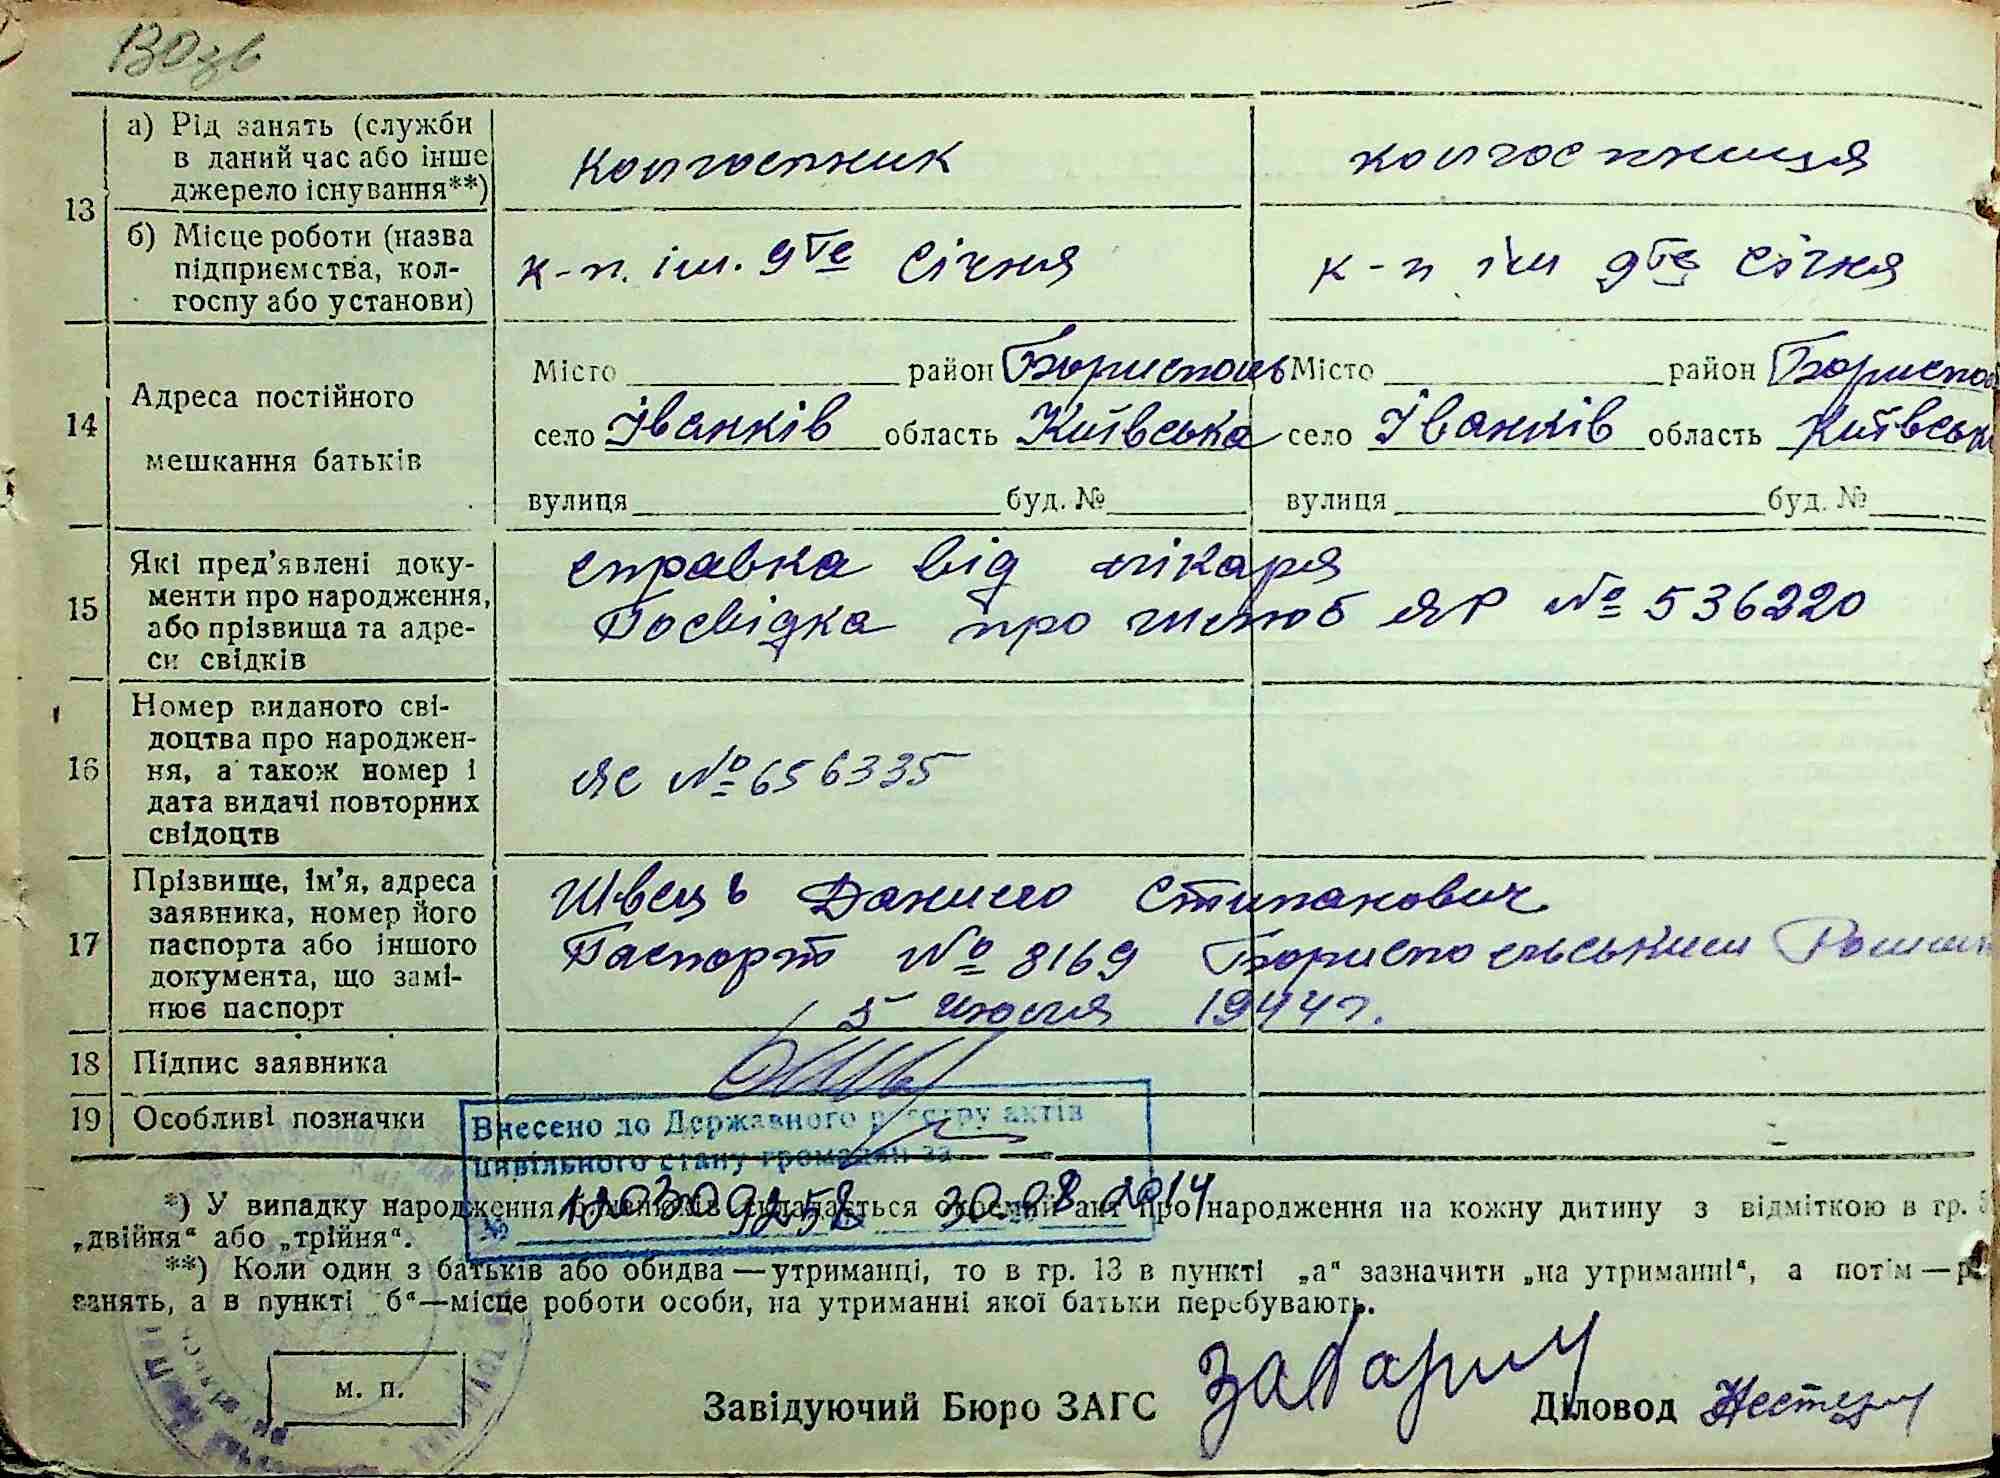 130зв
13
а) Рід занять (служби
в даний час або інше
джерело існування**)
Колгоспник
колгоспниця
б) Місце роботи (назва
підприємства, кол-
госпу або установи)
к-п. ім. 9го Січня
к-п ім 9го Січня
14
Адреса постійного
мешкання батьків
Місто район Бориспољ
село Іванків область Київська
вулиця буд. №
Місто район Бориспо
село Іванків область Київськ
вулиця буд. №
15
Які пред’явлені доку-
менти про народження,
або прізвища та адре-
си свідків
справка від лікаря
Посвідка про шлюб ЯР № 536220
16
Номер виданого сві-
доцтва про народжен-
ня, а також номер і
дата видачі повторних
свідоцтв
ЯС № 656335
17
Прізвище, ім’я, адреса
заявника, номер його
паспорта або іншого
документа, що замі-
нює паспорт
Швець Данило Стипанович
Паспорт № 8169 Бориспольським
5 июля 1944 г.
18
Підпис заявника
19
Особливі позначки
Внесено до Державного реєстру актів
цивільного стану громадян за
№ 30.08.2014
*) У випадку народження близнюків складається окремий акт про народження на кожну дитину з відміткою в гр. 5
„двійня“ або „трійня“.
**) Коли один з батьків або обидва — утриманці, то в гр. 13 в пункті „а“ зазначити „на утриманні“, а потім — р
занять, а в пункті „б“ — місце роботи особи, на утриманні якої батьки перебувають.
м. п.
Завідуючий Бюро ЗАГС
Діловод